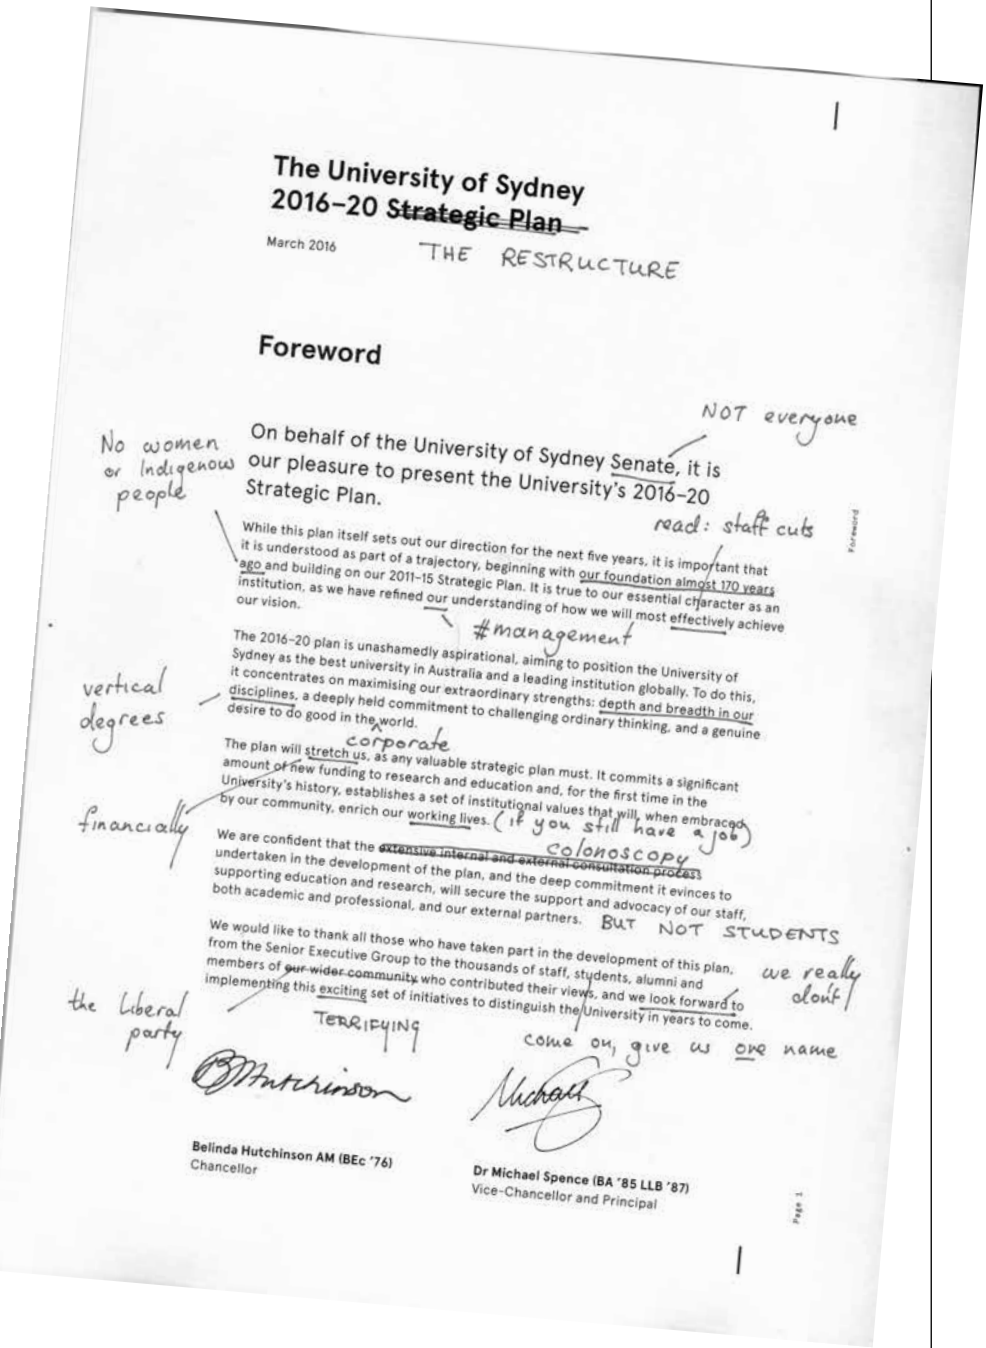 The University of Sydney
2016–20 Strategic Plan
March 2016
THE RESTRUCTURE
Foreword
NOT everyone
No women
or Indigenous
people
On behalf of the University of Sydney Senate, it is
our pleasure to present the University's 2016–20
Strategic Plan.
read: staff cuts
Foreword
While this plan itself sets out our direction for the next five years, it is important that
it is understood as part of a trajectory, beginning with our foundation almost 170 years
ago and building on our 2011–15 Strategic Plan. It is true to our essential character as an
institution, as we have refined our understanding of how we will most effectively achieve
our vision.
#management
The 2016–20 plan is unashamedly aspirational, aiming to position the University of
Sydney as the best university in Australia and a leading institution globally. To do this,
it concentrates on maximising our extraordinary strengths: depth and breadth in our
disciplines, a deeply held commitment to challenging ordinary thinking, and a genuine
desire to do good in the world.
vertical
degrees
corporate
The plan will stretch us, as any valuable strategic plan must. It commits a significant
amount of new funding to research and education and, for the first time in the
University's history, establishes a set of institutional values that will, when embraced
by our community, enrich our working lives. (if you still have a job)
financially
colonoscopy
We are confident that the extensive internal and external consultation process
undertaken in the development of the plan, and the deep commitment it evinces to
supporting education and research, will secure the support and advocacy of our staff,
both academic and professional, and our external partners. BUT NOT STUDENTS
We would like to thank all those who have taken part in the development of this plan,
from the Senior Executive Group to the thousands of staff, students, alumni and
members of our wider community who contributed their views, and we look forward to
implementing this exciting set of initiatives to distinguish the University in years to come.
we really
don't
the Liberal
party
TERRIFYING
come on, give us one name
BMHutchinson
Michael S
Belinda Hutchinson AM (BEc '76)
Chancellor
Dr Michael Spence (BA '85 LLB '87)
Vice-Chancellor and Principal
Page 1